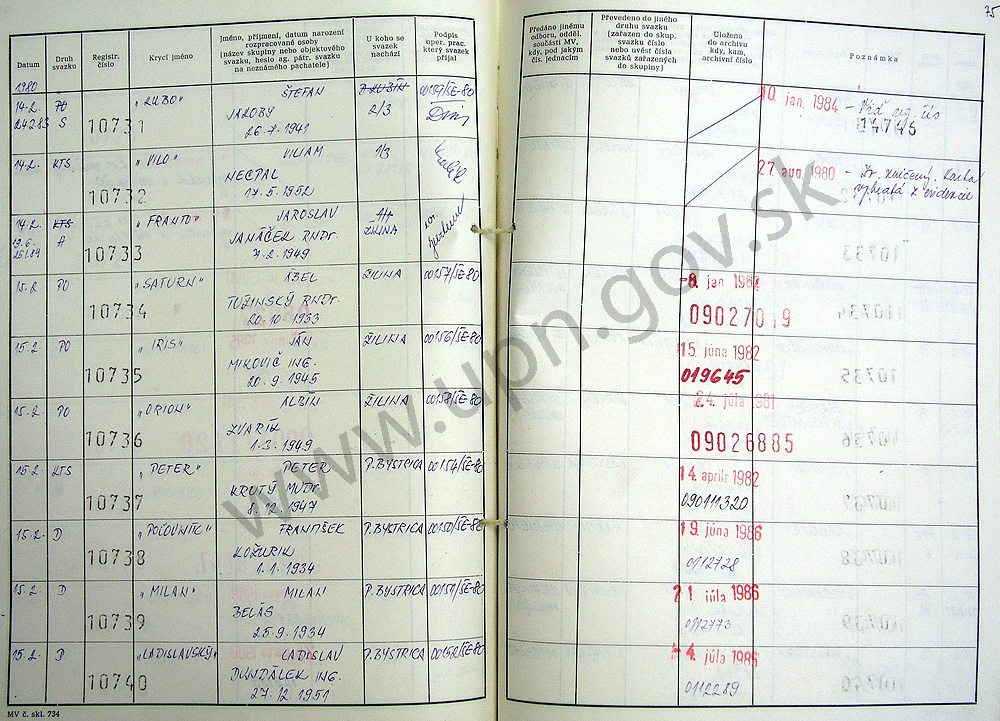 75
Datum
Druh svazku
Registr. číslo
Krycí jméno
Jméno, příjmení, datum narození
rozpracované osoby
(název skupiny nebo objektového
svazku, heslo ag. pátr. svazku
na neznámého pachatele)
U koho se
svazek
nachází
Podpis
oper. prac.
který svazek
přijal
Předáno jinému
odboru, odděl.
součásti MV,
kdy, pod jakým
čís. jednacím
Převedeno do jiného
druhu svazku
(zařazen do skup.
svazku číslo
nebo uvést čísla
svazků zařazených
do skupiny)
Uloženo
do archivu
kdy, kam,
archivní číslo
Poznámka
1980
14.2. PO „LUBO" ŠTEFAN 00159/ŠE-80 10. jan. 1984
24.2.83 S 10731 JAKOBY 2/3 04745
26.7.1941
14.2. KTS „VILO" VILIAM 1/3 27. aug. 1980
10732 NECPAL
17.5.1952
14.2. KTS „FRANTO" JAROSLAV
A 10733 JANÁČEK RNDr. ŽILINA
7.2.1949
15.2. PO „SATURN" ÁBEL ŽILINA 00157/ŠE-80 -8. jan 1982
10734 TUŽINSKÝ RNDr. 09027019
20.10.1933
15.2. PO „IRIS" JÁN ŽILINA 00156/ŠE-80 15. júna 1982
10735 MIKOVIČ ING. 019645
20.9.1945
15.2. PO „ORION" ALBÍN ŽILINA 00158/ŠE-80 24. júla 1981
10736 ZVARÍK 09026885
1.3.1949
15.2 KTS „PETER" PETER P. BYSTRICA 00154/ŠE-80 14. apríla 1982
10737 KRUTÝ MUDr. 090111320
8.12.1947
15.2. D „POĽOVNÍK" FRANTIŠEK P. BYSTRICA 00150/ŠE-80 19. júna 1986
10738 KOŽURIK 0112728
1.1.1934
15.2. D „MILAN" MILAN P. BYSTRICA 00151/ŠE-80 21. júla 1986
10739 BELÁS 0112773
25.9.1934
15.2. D. „LADISLAVSKÝ" LADISLAV P. BYSTRICA 00152/ŠE-80 -4. júla 1985
10740 DUNDÁLEK ING. 0112289
27.12.1951
MV č. skl. 734
www.upn.gov.sk